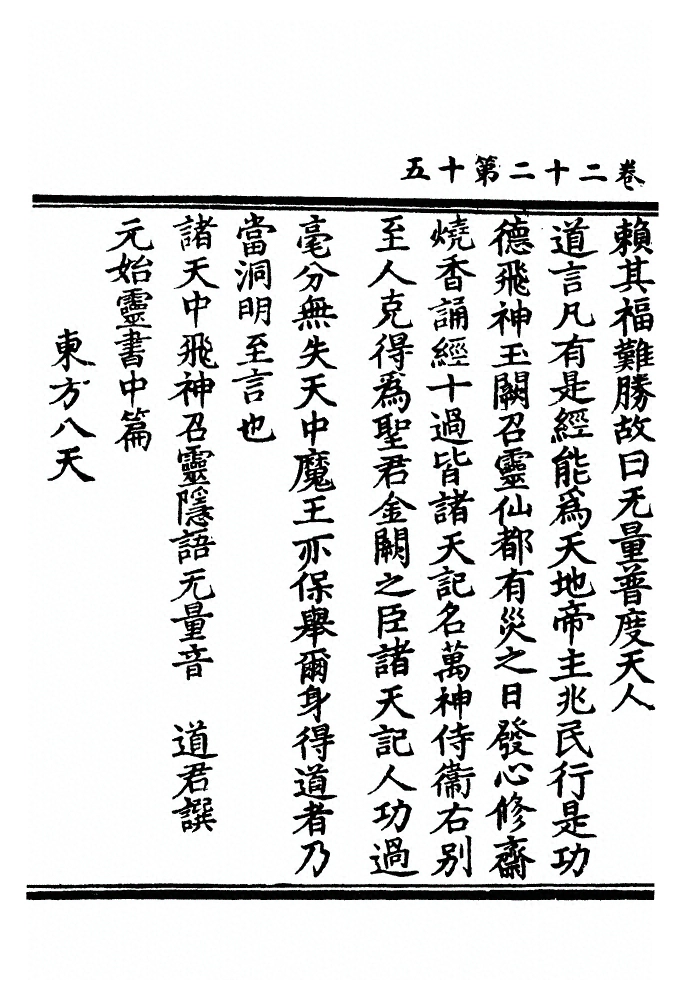 卷二十二第十五
賴其福難勝故曰无量普度天人
道言凡有是經能爲天地帝主兆民行是功
德飛神玉闕召靈仙都有災之日發心修齋
燒香誦經十過皆諸天記名萬神侍衛右別
至人克得爲聖君金闕之臣諸天記人功過
毫分無失天中魔王亦保舉爾身得道者乃
當洞明至言也
諸天中飛神召靈隱語无量音　道君譔
元始靈書中篇
東方八天